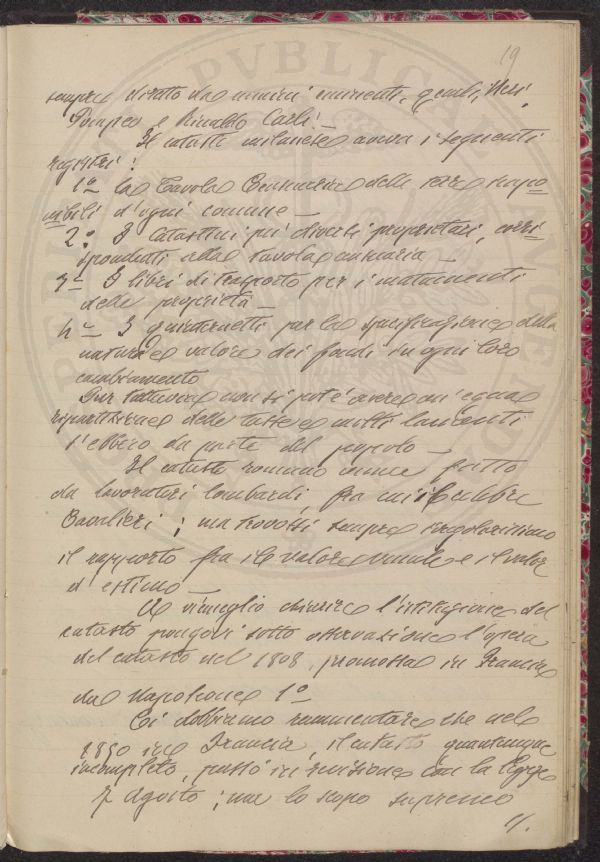 19
sempre diretto da uomini eminenti, quali, Neri,
Pompeo e Rinaldo Carli —
Il catasto milanese aveva i seguenti
registri:
1º La Tavola Censuaria delle terre impo-
nibili d'ogni comune —
2º I Catastini pei diversi proprietari, corri-
spondenti alla tavola censuaria —
3º I libri di trasporto per i mutamenti
delle proprietà —
4º I quinternetti per la specificazione della
natura e valore dei fondi in ogni loro
cambiamento
Pur tuttavia non si poté avere un'equa
ripartizione delle tasse e molti lamenti
s'ebbero da parte del popolo —
Il catasto romano invece, fatto
da lavoratori lombardi, fra cui il celebre
Cavalieri; ma trovossi sempre irregolarissimo
il rapporto fra il valore venale e il valor
d'estimo —
A vimeglio chiarire l'istituzione del
catasto pongovi sotto osservazione l'opera
del catasto nel 1808, promossa in Francia
da Napoleone 1º
Ci dobbiamo rammentare che nel
1850 in Francia, il catasto quantunque
incompleto, passò in revisione con la legge
7 Agosto; ma lo scopo supremo